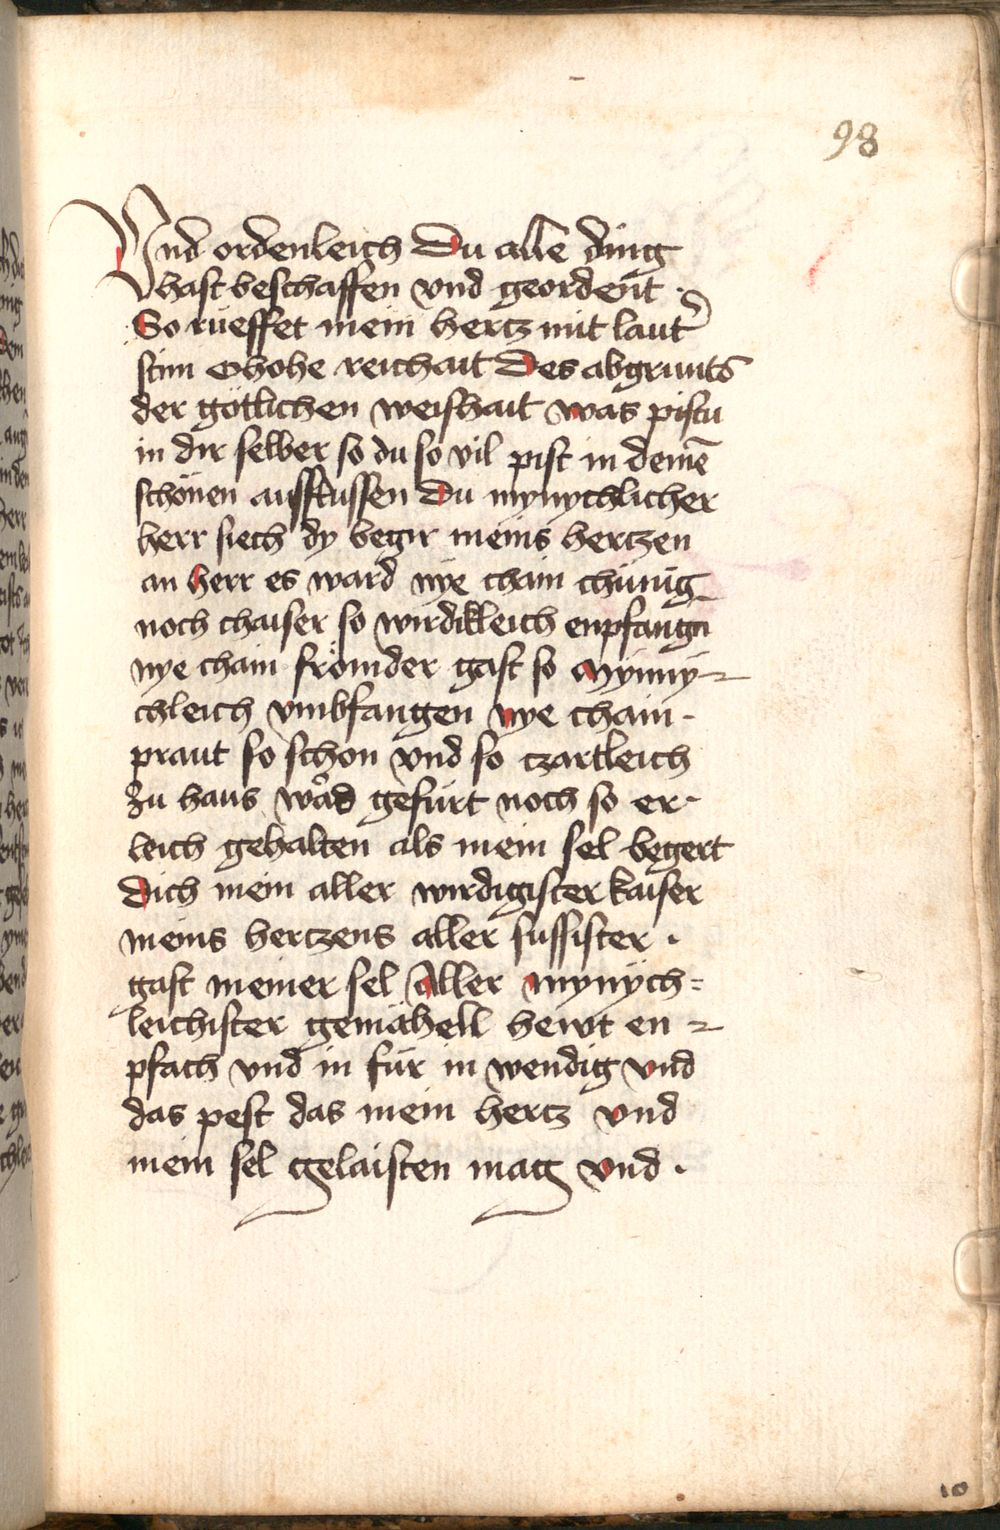 98
Vnd ordenleich Du alle ding
hast beschaffen vnd geordent ·
So rüeffet mein hertz mit laut̾
stim O hohe reichait Des abgrunts
der götlichen weishait was pistu
in dir selber so du so vil pist in deinē
schönen ausflussen Du mynychlicher
herr siech dy begir meins hertzen
an herr es ward nye chain chünig
noch chaiser so wirdikleich enpfangn
nye chain frömder gast so Mynny-
chleich vmbfangen nye chain ·
praut so schon vnd so czartleich
zu haus ward gefürt noch so er-
leich gehalten als mein sel begert
Dich mein aller wirdigister kaiser
meins hertzens aller sussister ·
gast meiner sel Aller mynych=
leichister gemähell hewt en-
pfach vnd in für in wendig vnd
das pest das mein hertz vnd
mein sel gelaisten mag vnd ·
10